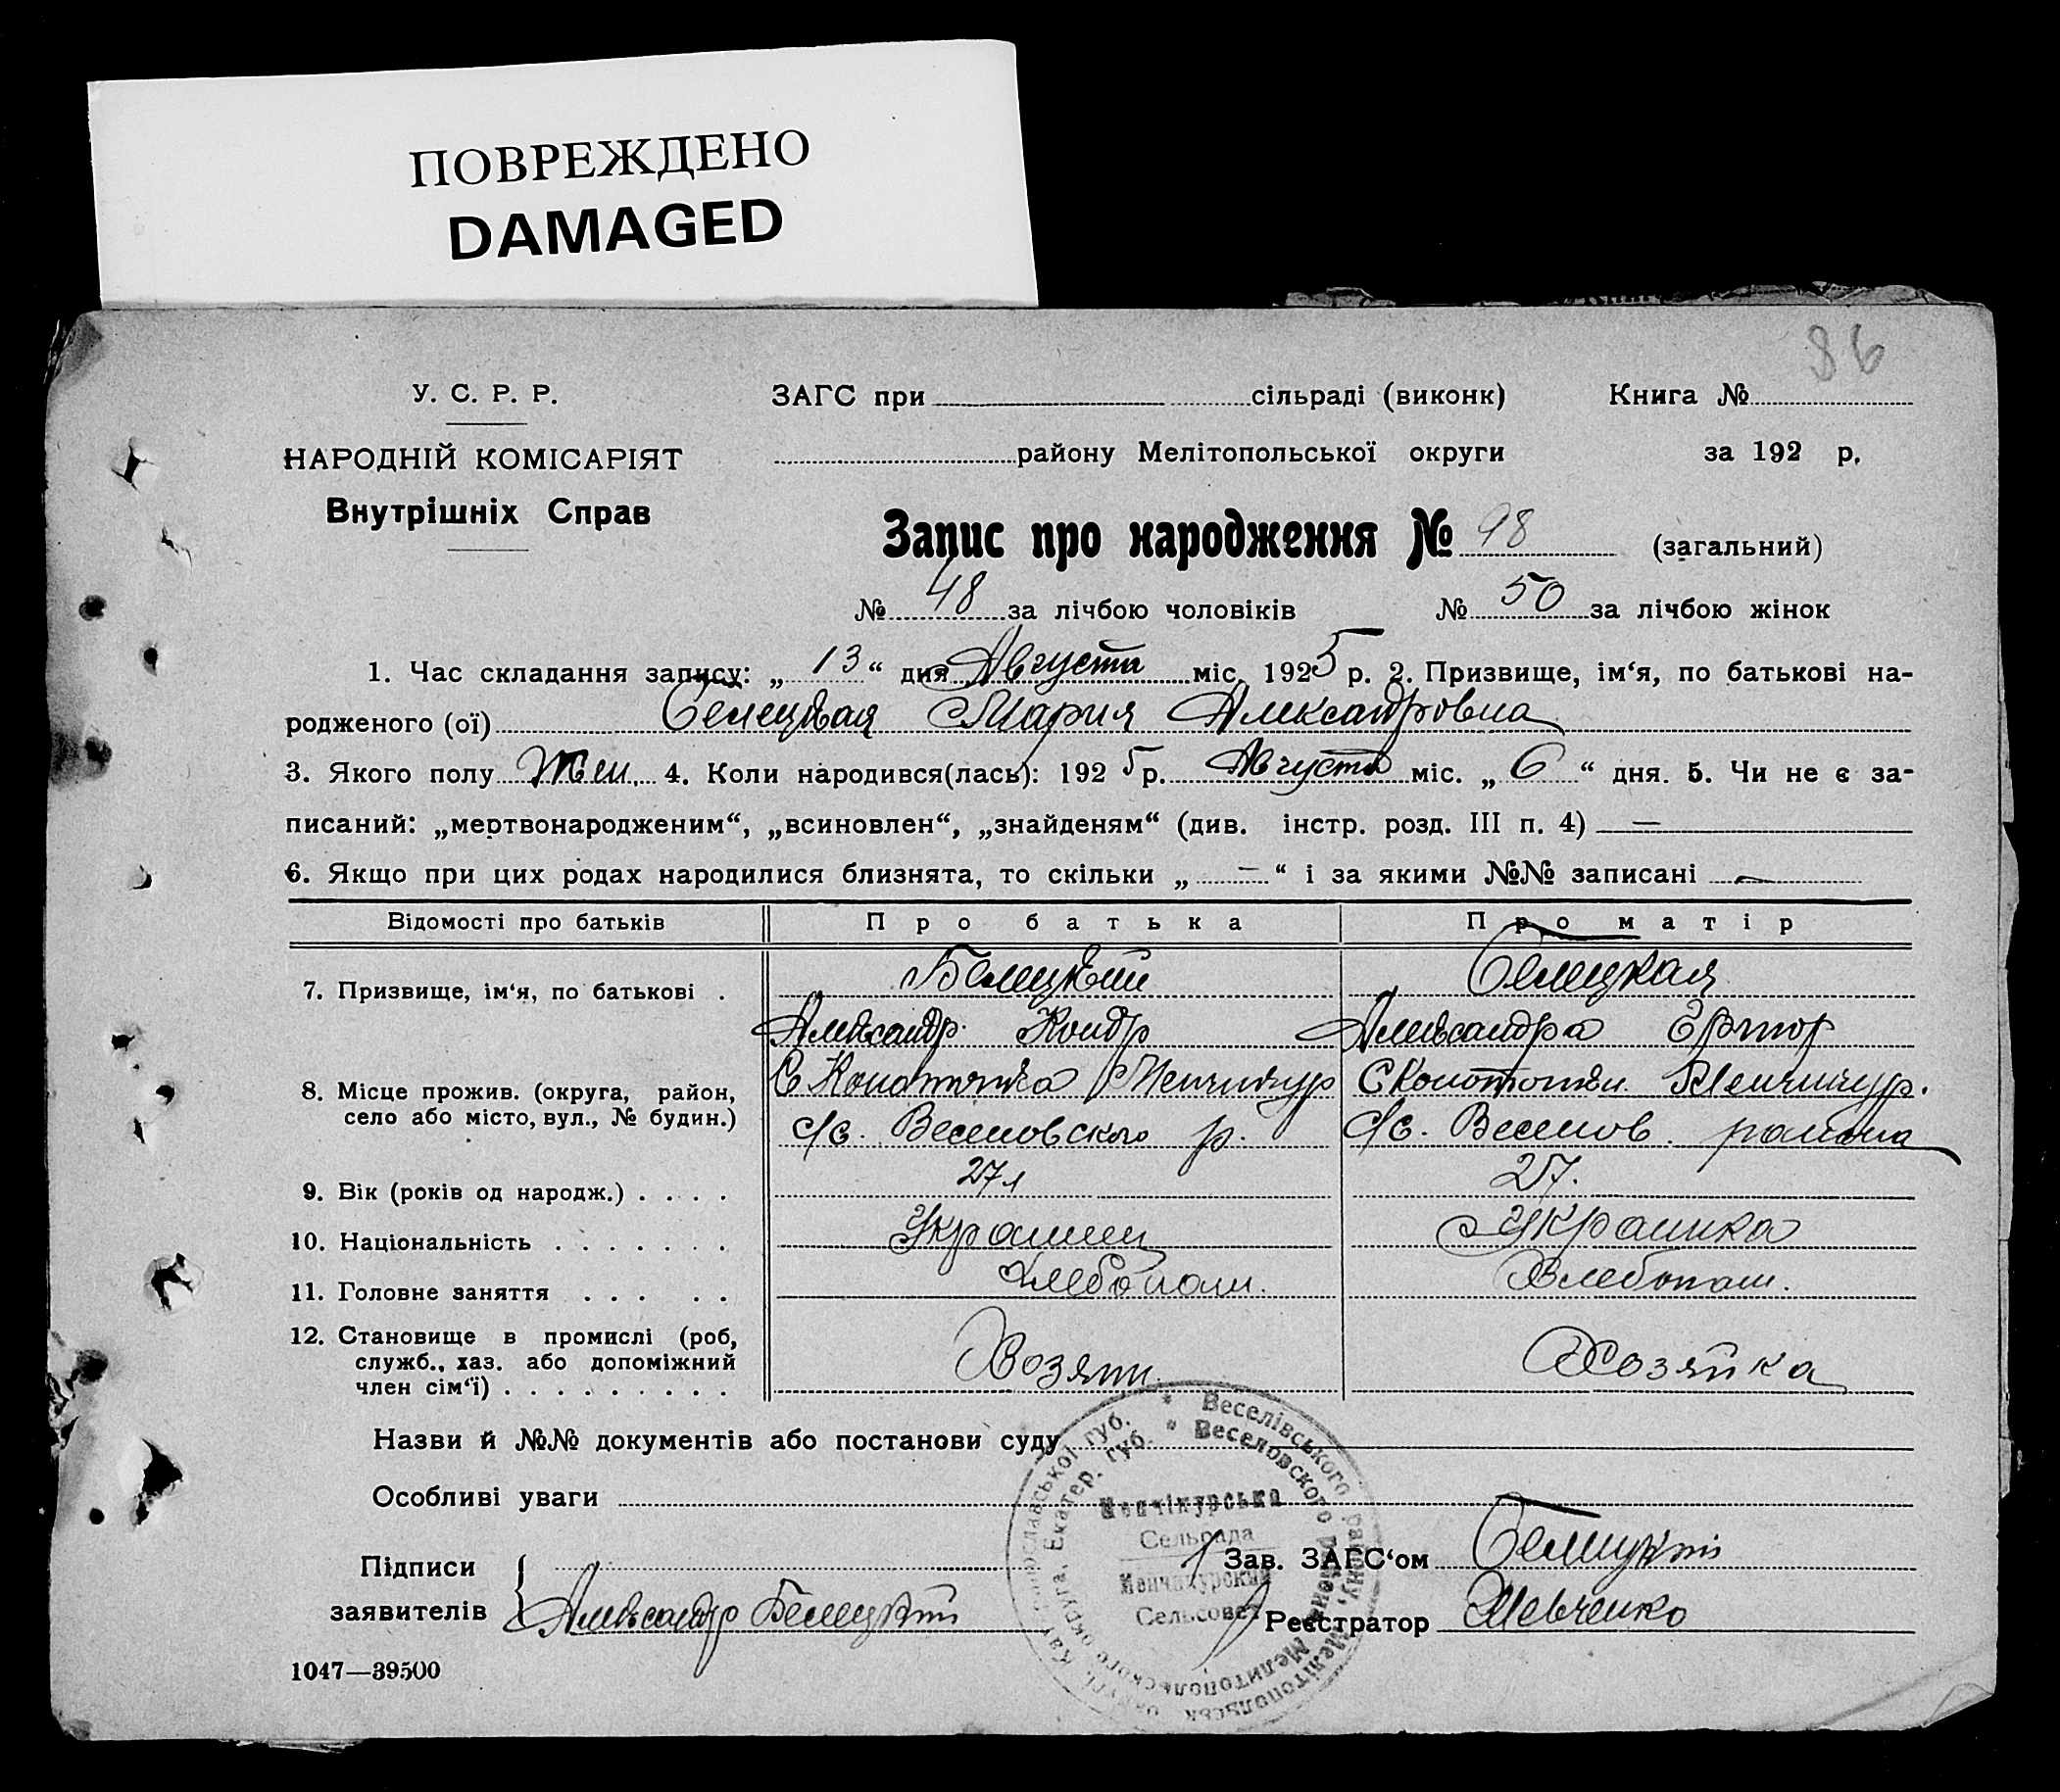 ПОВРЕЖДЕНО
DAMAGED
86
У. С. Р. Р.
НАРОДНІЙ КОМІСАРІЯТ
Внутрішніх Справ
ЗАГС при сільраді (виконк)
Книга №
району Мелітопольської округи
за 192 р.
Запис про народження № 98 (загальний)
№ 48 за лічбою чоловіків № 50 за лічбою жінок
1. Час складання запису: „13“ дня Августа міс. 1925 р. 2. Призвище, ім‘я, по батькові на-
родженого (ої) Белецкая Мария Александровна
3. Якого полу Жен. 4. Коли народився(лась): 1925 р. Августа міс. „6“ дня. 5. Чи не є за-
писаний: „мертвонародженим“, „всиновлен“, „знайденям“ (див. інстр. розд. III п. 4) —
6. Якщо при цих родах народилися близнята, то скільки „ — “ і за якими №№ записані —
Відомості про батьків Про батька Про матір
7. Призвище, ім‘я, по батькові . Белецкий Белецкая
Александр Кондр Александра
8. Місце прожив. (округа, район,
село або місто, вул., № будин.)
С Менчикур С Менчикур.
с/с. Веселовского р. с/с. Веселов. района
9. Вік (років од народж.) . . . . 27 л 27.
10. Національність . . . . . . . Украинец Украинка
11. Головне заняття . . . . . Хлебопаш. Хлебопаш.
12. Становище в промислі (роб,
служб., хаз. або допоміжний
член сім‘ї) . . . . . . . . . Хозяин Хозяйка
Назви й №№ документів або постанови суду
Особливі уваги
Підписи
заявителів Александр Белецкий
Зав. ЗАГС‘ом Белецкий
Реєстратор Шевченко
Веселівського району, Мелітопольськ округи, Катеринославської губ.
Веселовского района Мелитопольского округа, Екатер. губ.
Менчікурська
Сельрада
Менчикурский
Сельсовет
1047—39500